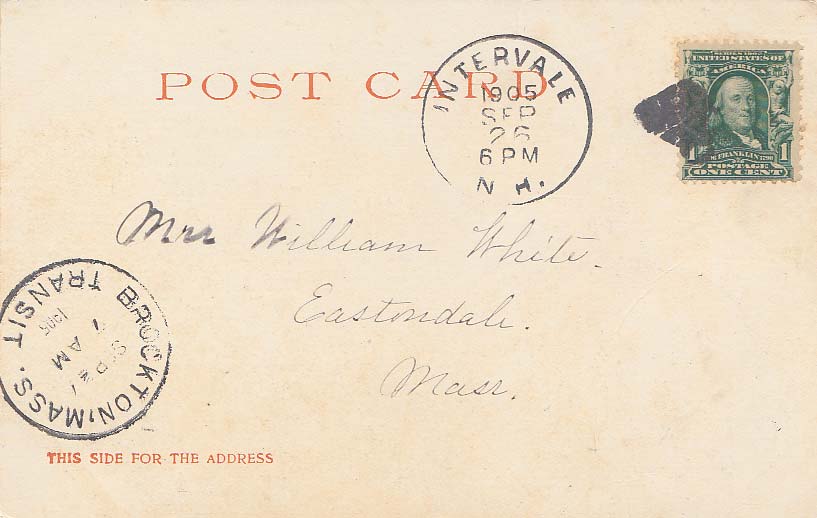 POST CARD
INTERVALE
1905
SEP
26
6 PM
N. H.
SERIES 1902
UNITED STATES OF
AMERICA
FRANKLIN 1790
POSTAGE
1 1
ONE CENT
Mrs William White.
Eastondale.
Mass.
BROCKTON, MASS.
TRANSIT
1905
7
AM
SEP 27
THIS SIDE FOR THE ADDRESS